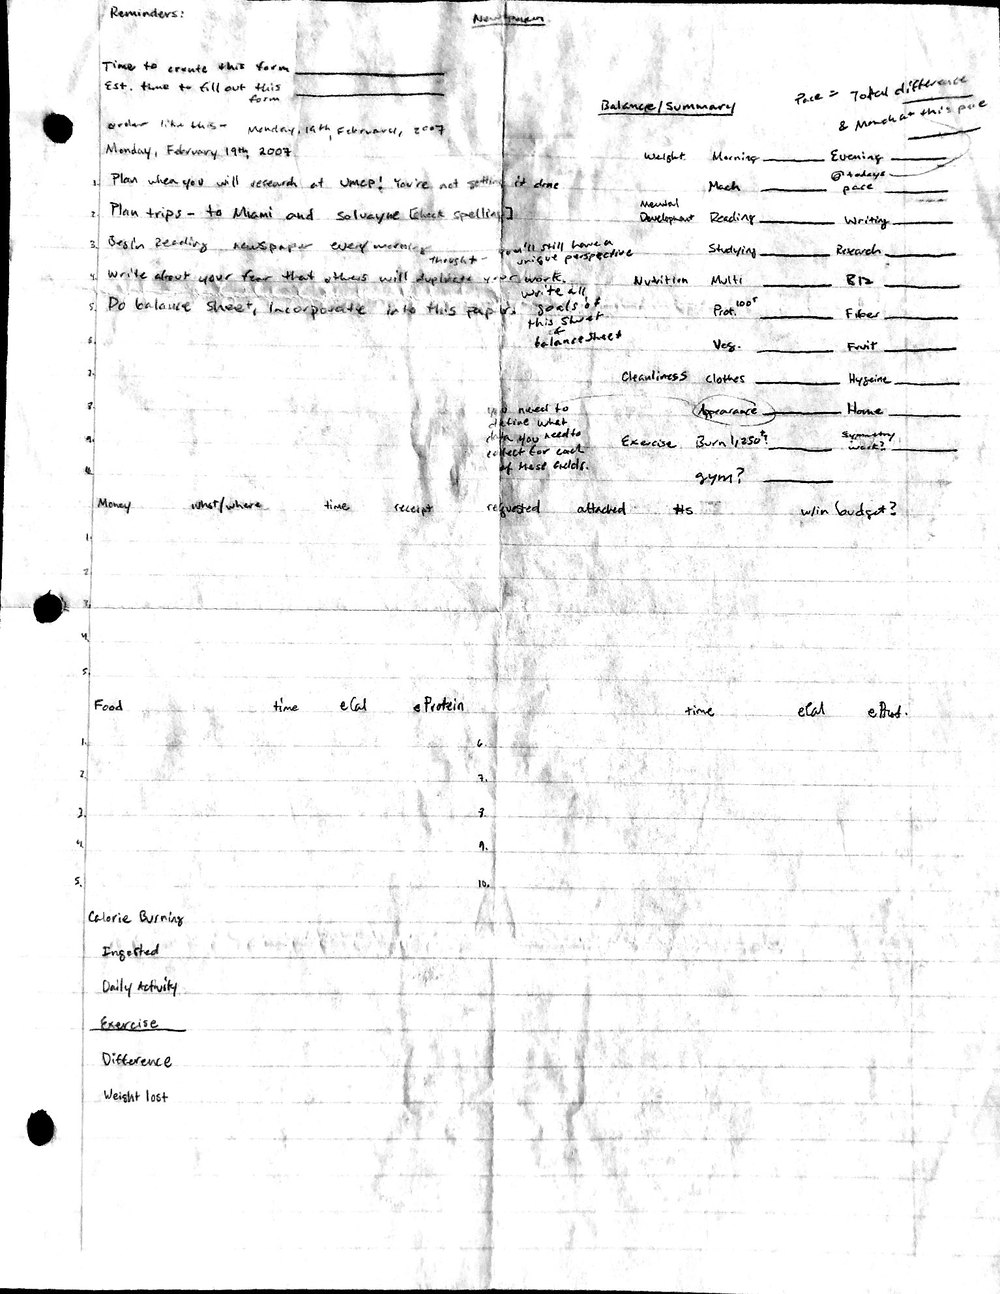 Reminders:
Newspaper
Time to create this form
Est. time to fill out this
form
order like this - Monday, 19th, February, 2007
Monday, February 19th, 2007
1. Plan when you will research at UMCP! You're not getting it done
2. Plan trips - to Miami and solvayne [check spelling]
3. Begin Reading newspaper every morning
thought - you'll still have a
unique perspective
4. Write about your fear that others will duplicate your work.
5. Do balance sheet, incorporate into this paper.
write all
goals of
this sheet
balance sheet
6.
7.
8.
9.
10.
you need to
define what
data you need to
collect for each
of these fields.
Balance/Summary
Pace = Total difference
& Men this pace
Weight Morning Evening
Mach @ todays
pace
Mental
Development Reading Writing
Studying Research
Nutrition Multi B12
Prot. 100+ Fiber
Veg. Fruit
Cleanliness Clothes Hygeine
Appearance Home
Exercise Burn 1,250+? Symmetry
work?
gym?
Money what/where time receipt requested attached #s w/in budget?
1.
2.
3.
4.
5.
Food time eCal eProtein time eCal eProt.
1. 6.
2. 7.
3. 8.
4. 9.
5. 10.
Calorie Burning
Ingested
Daily Activity
Exercise
Difference
Weight lost